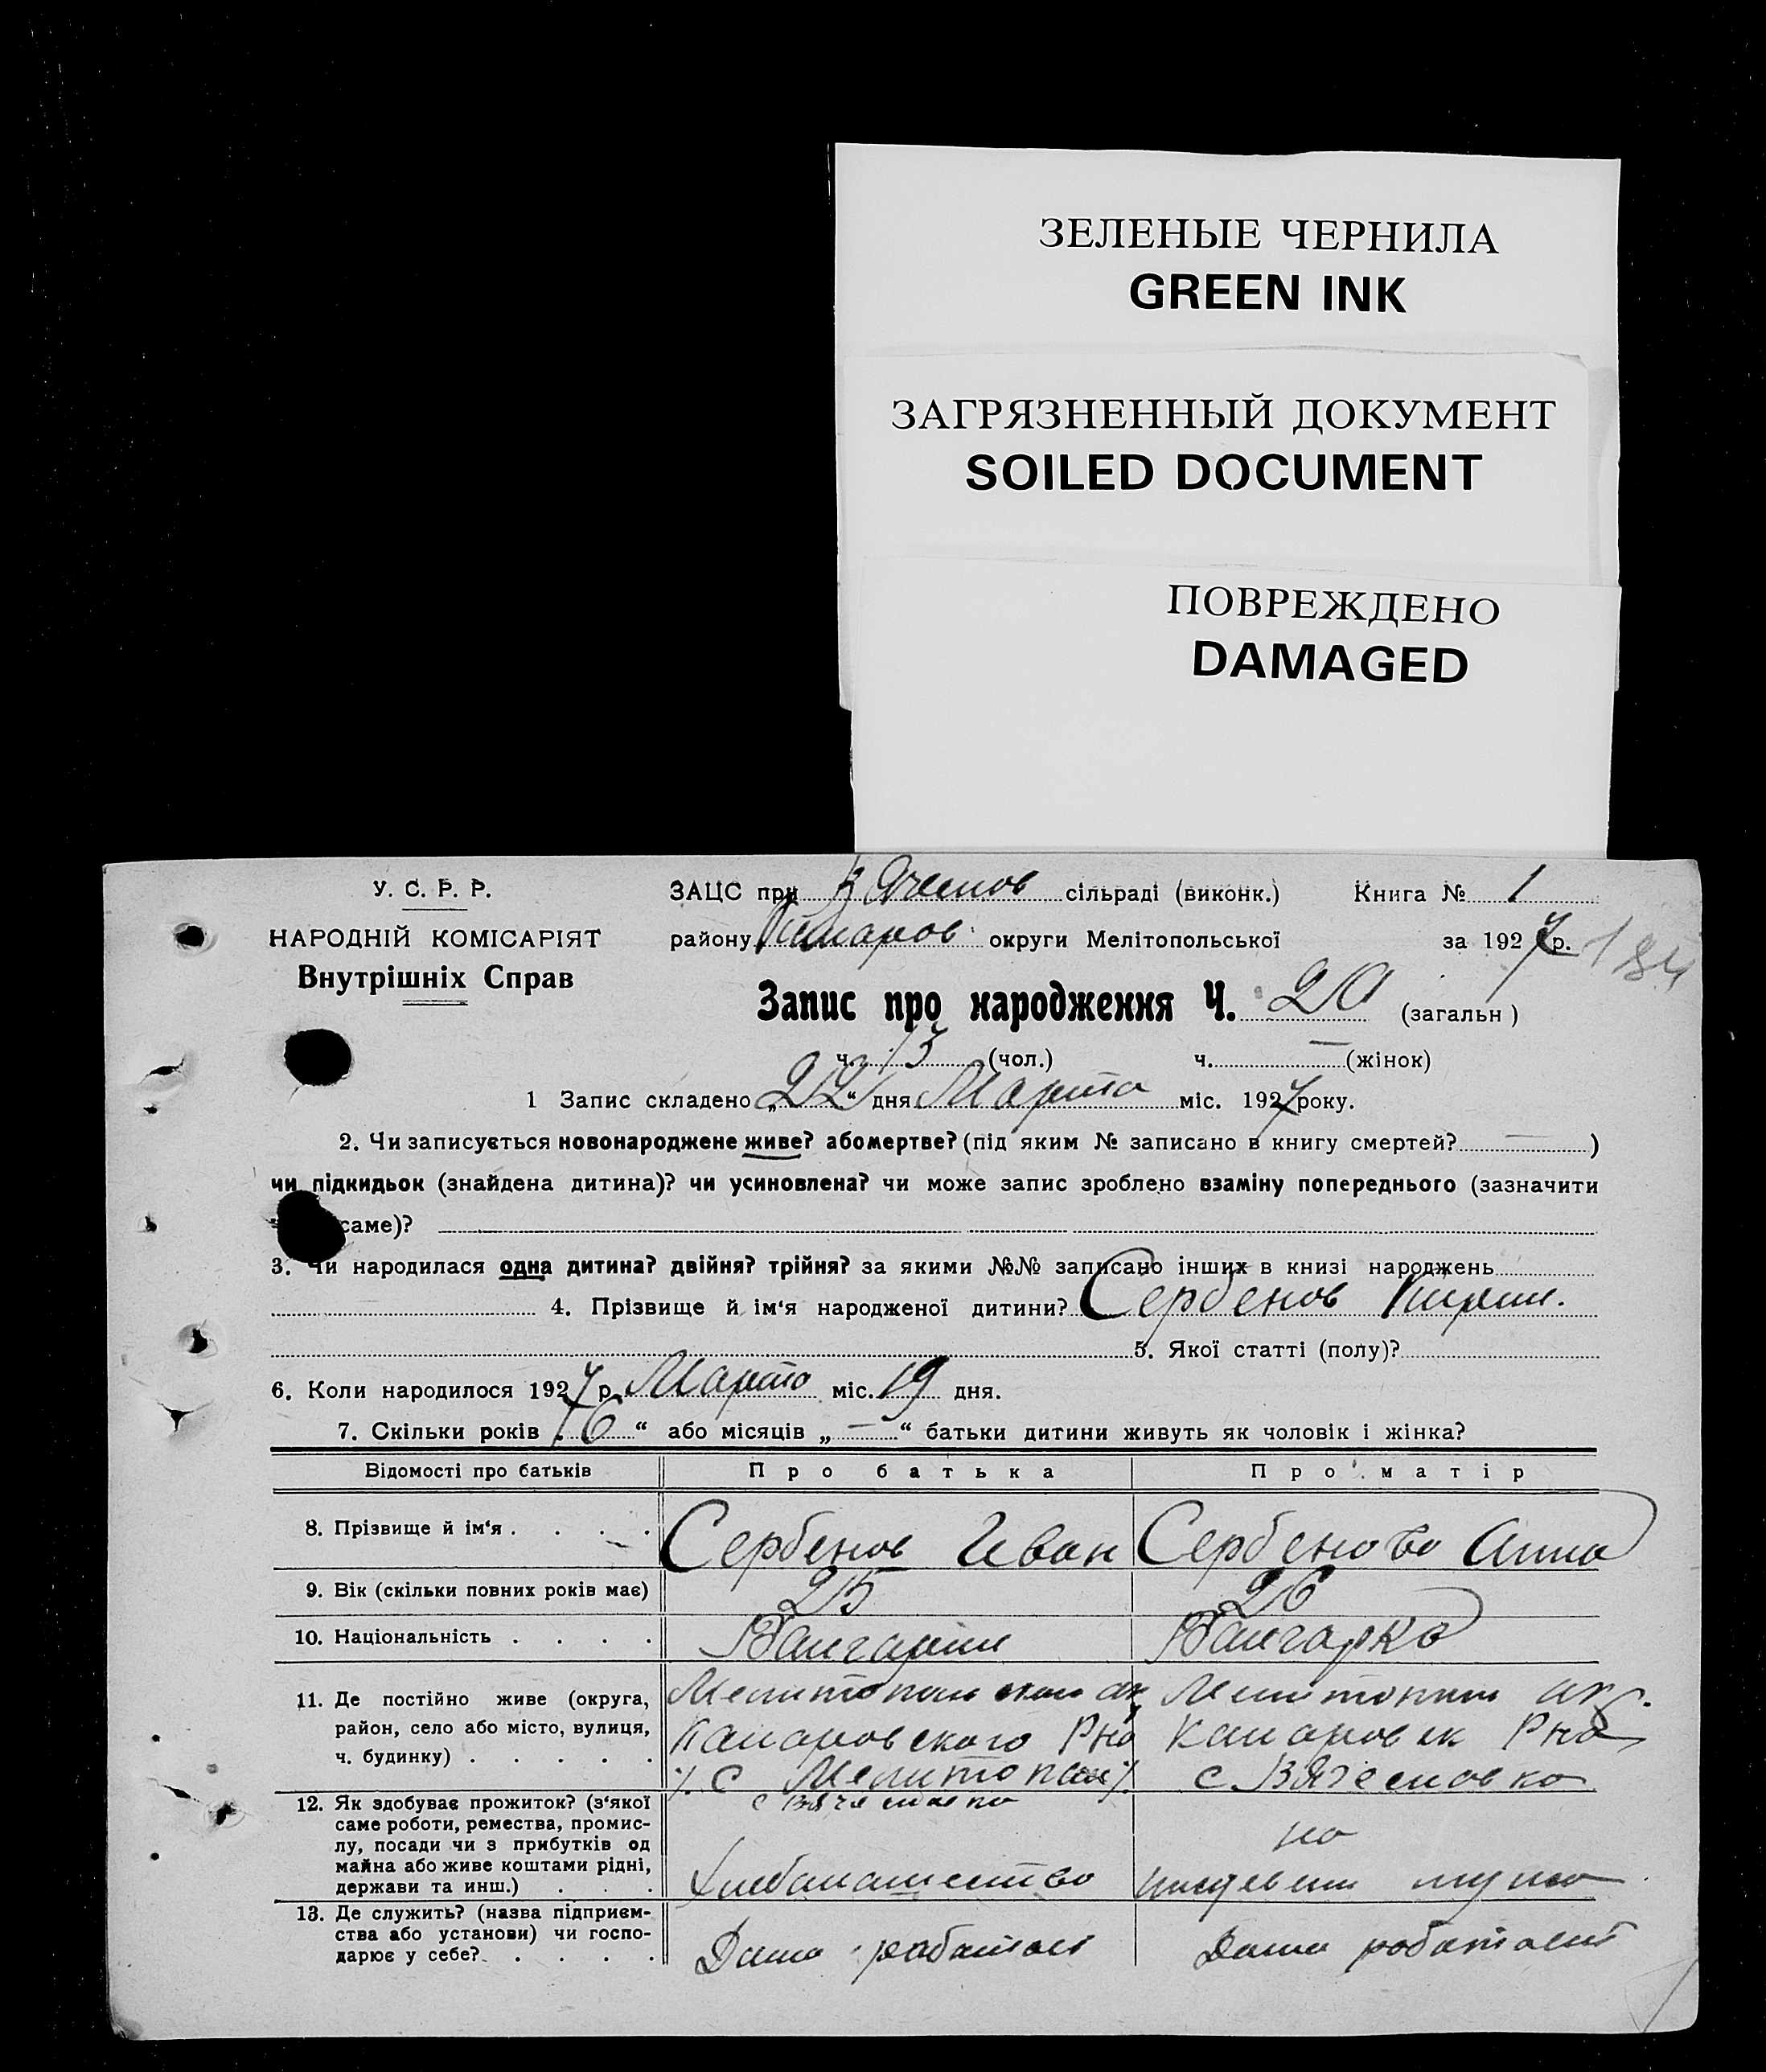 ЗЕЛЕНЫЕ ЧЕРНИЛА
GREEN INK
ЗАГРЯЗНЕННЫЙ ДОКУМЕНТ
SOILED DOCUMENT
ПОВРЕЖДЕНО
DAMAGED
У. С. Р. Р.
НАРОДНІЙ КОМІСАРІЯТ
Внутрішніх Справ
ЗАЦС при Вячеслов сільраді (виконк.) Книга № 1
району округи Мелітопольської за 1927 р. 184
Запис про народження Ч. 20 (загальн)
ч. 13 (чол.) ч. — (жінок)
1 Запис складено „22“ дня Марта міс. 1927 року.
2. Чи записується новонароджене живе? або мертве? (під яким № записано в книгу смертей? — )
чи підкидьок (знайдена дитина)? чи усиновлена? чи може запис зроблено взаміну попереднього (зазначити
саме)?
3. Чи народилася одна дитина? двійня? трійня? за якими №№ записано інших в книзі народжень
4. Прізвище й ім‘я народженої дитини? Сербенов
5. Якої статті (полу)?
6. Коли народилося 1927 р. Марта міс. 19 дня.
7. Скільки років „6“ або місяців „—“ батьки дитини живуть як чоловік і жінка?
Відомості про батьків Про батька Про матір
8. Прізвище й ім‘я . . . . Сербенов Иван Сербенова Анна
9. Вік (скільки повних років має) 25 26
10. Національність . . . . Балгарин Балгарка
11. Де постійно живе (округа,
район, село або місто, вулиця,
ч. будинку) . . . . .
Мелитопольской ок Мелитопол ок.
Камаровского Рна Камаровск Рна
с Мелитопол с. Вячесловка
12. Як здобуває прожиток? (з‘якої
саме роботи, ремества, промис-
лу, посади чи з прибутків од
майна або живе коштами рідні,
держави та инш.) . . .
с Вячеславка
Хлебопашество на иждевении мужа
13. Де служить? (назва підприєм-
ства або установи) чи госпо-
дарює у себе? . . . .
Дома работает Дома работает